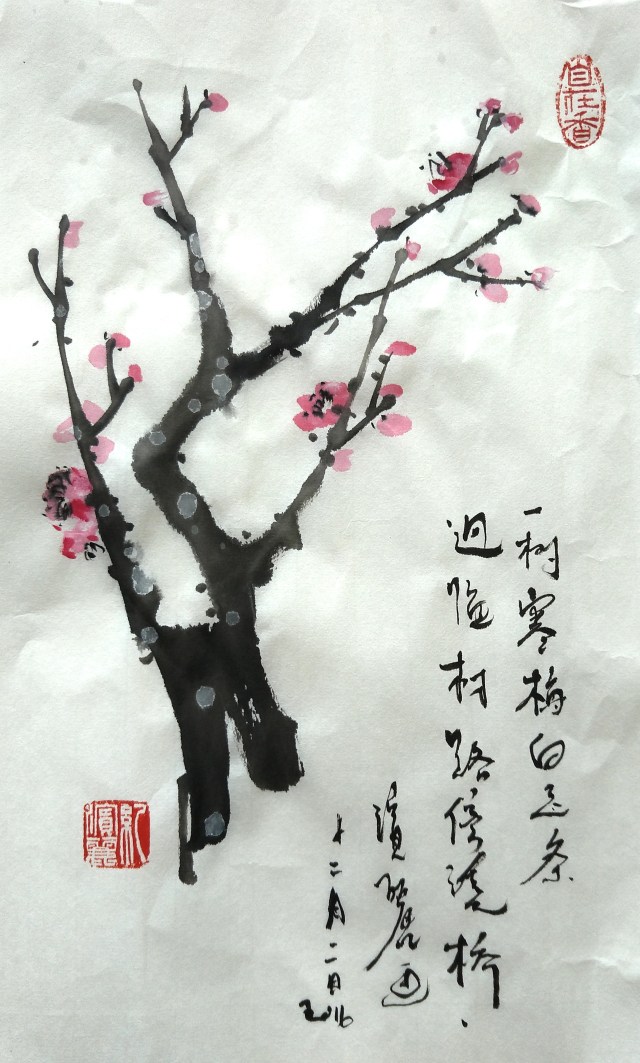 自在香
一树寒梅白玉条
迥临村路傍溪桥
滨麗画
十二月二日
2016